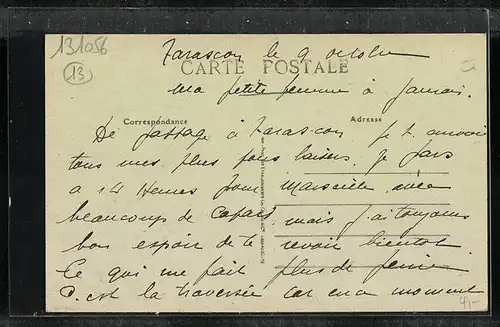 131056
13
Tarascon le 9 octobre
CARTE POSTALE
Ma petite femme à jamais.
Correspondance
Adresse
De passage à Tarascon je t'envoie
tous mes plus gros baisers. Je pars
a 14 Heures pour Marseille avec
beaucoup de cafard, mais j'ai toujours
bon espoir de te revoir bientot
Ce qui me fait plus de peine
C'est la traversée car en a moment